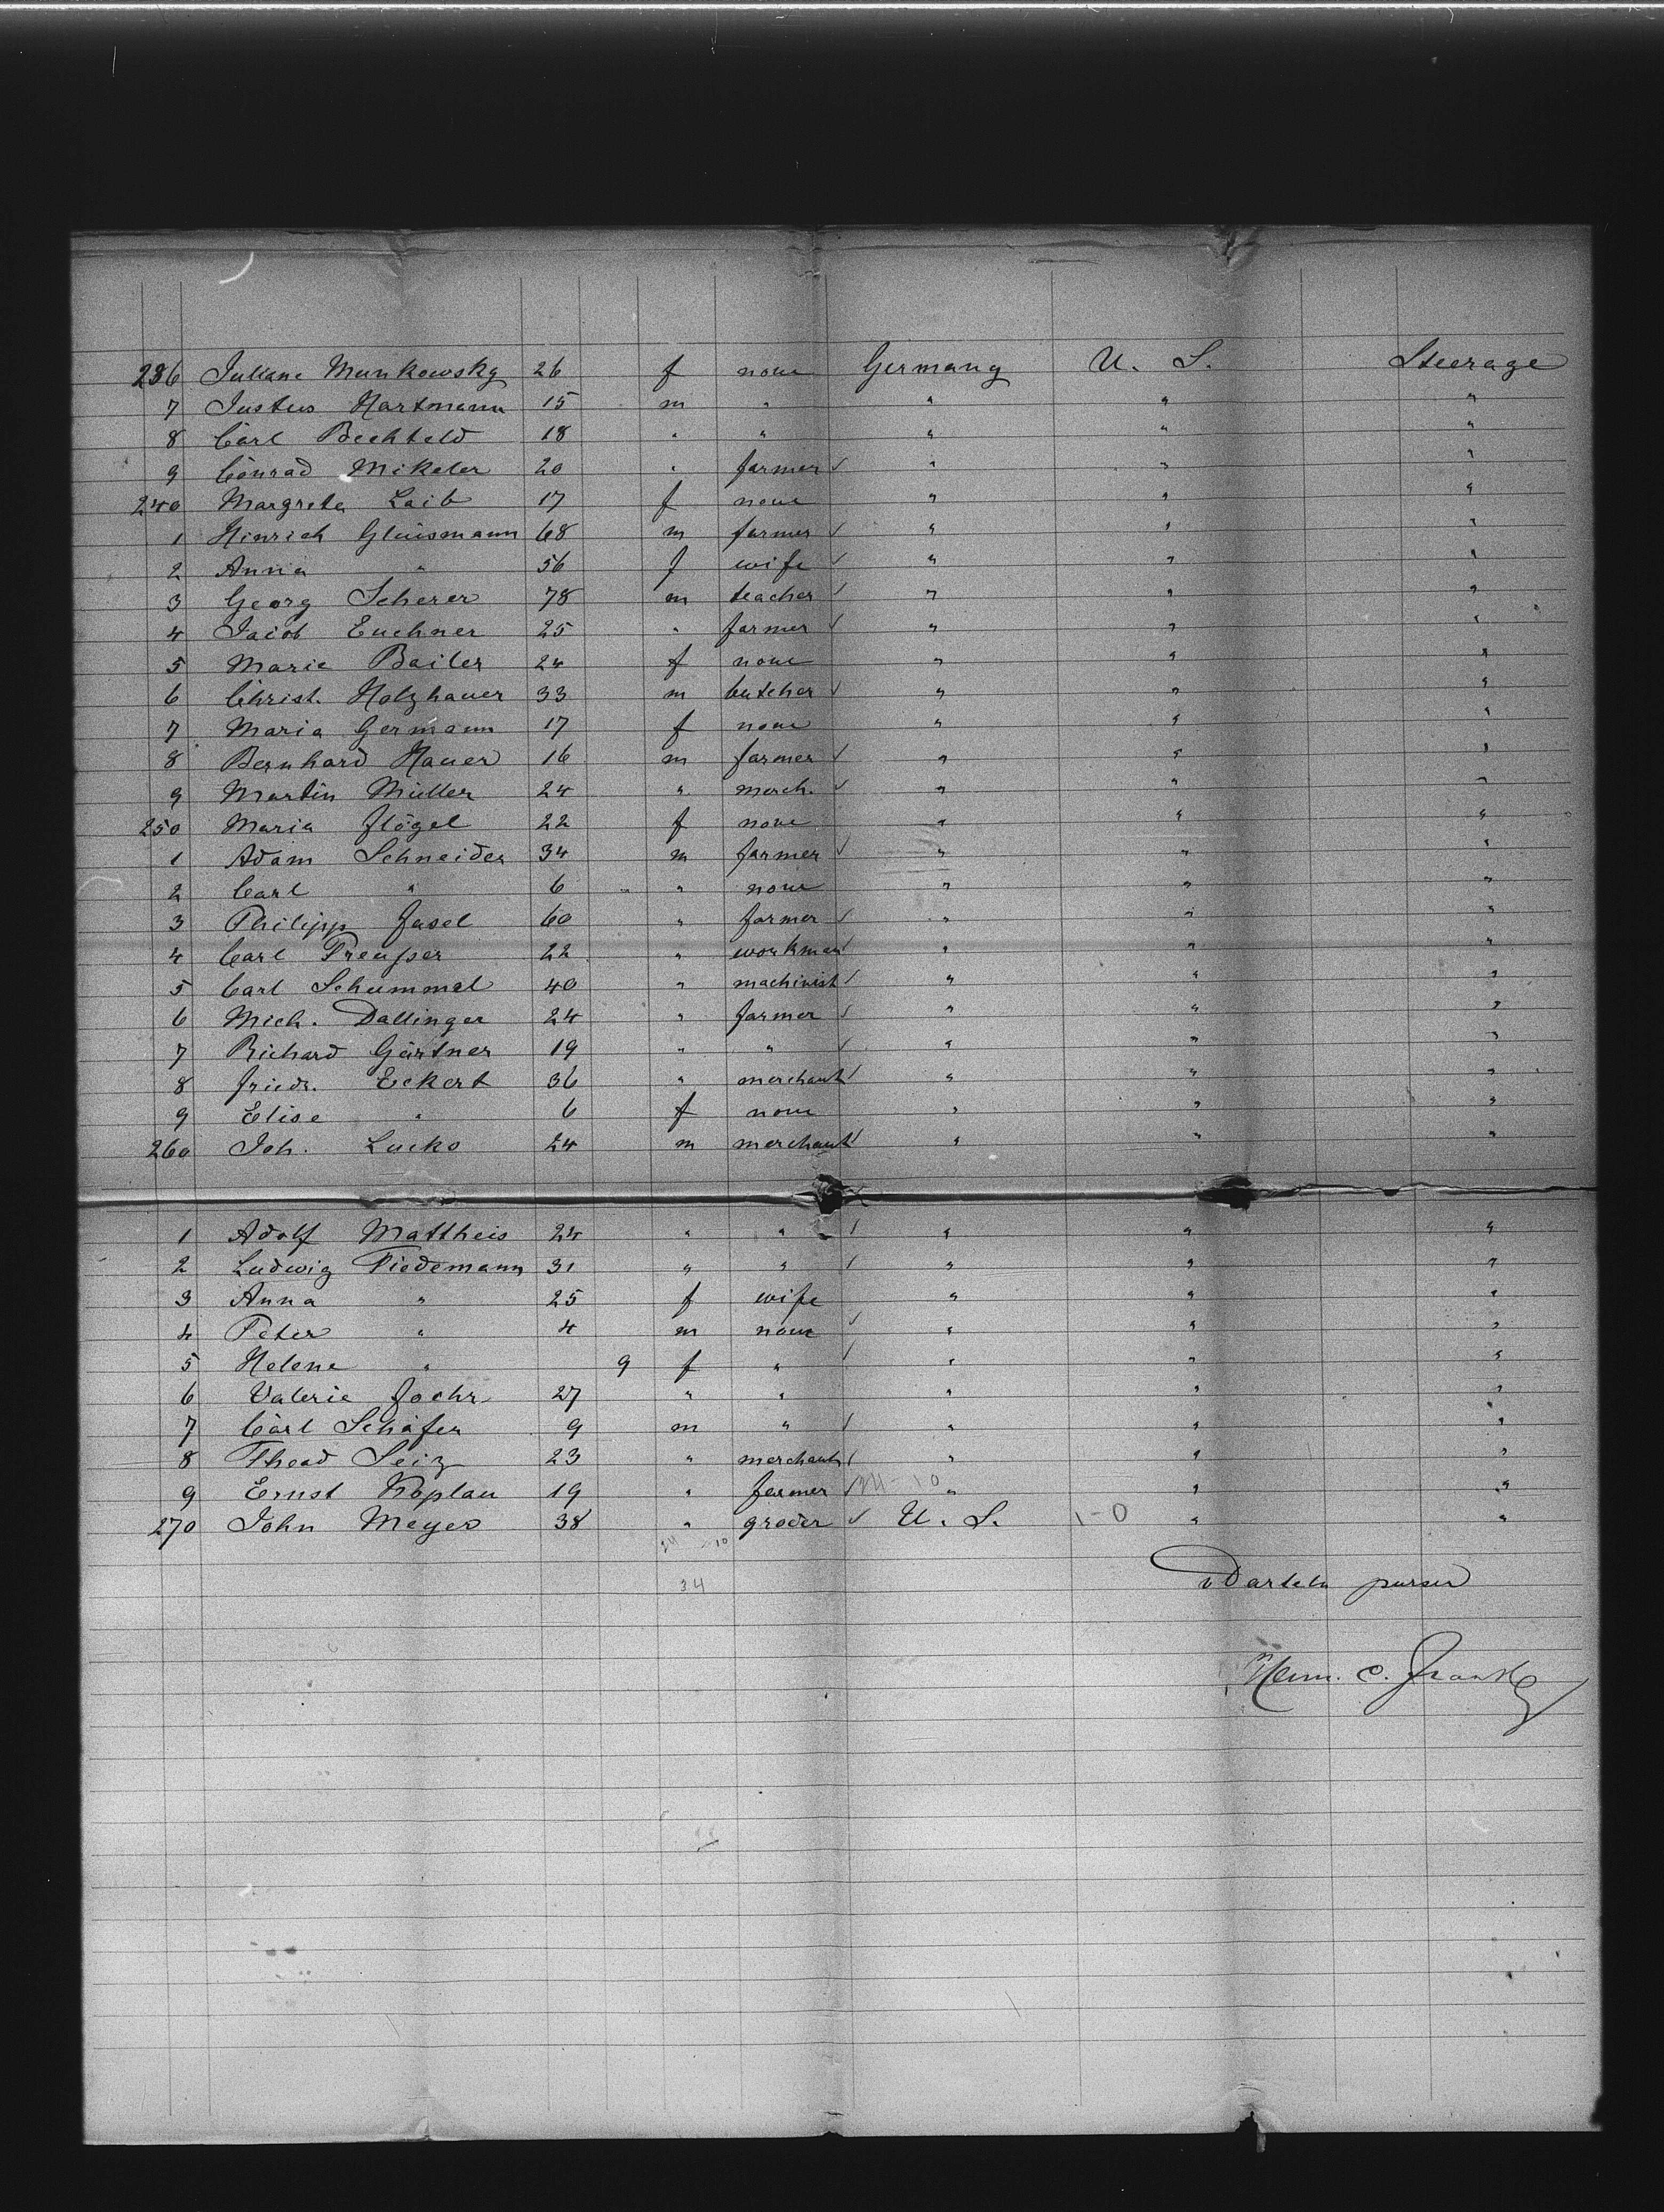 236 Juliane Munkowsky 26 f none Germany U. S. Steerage
7 Justus Hartmann 15 m " " " "
8 Carl Bechtold 18 " " " " "
9 Conrad Mikeler 20 " farmer " " "
240 Margreta Laib 17 f none " " "
1 Hinrich Glüismann 68 m farmer " " "
2 Anna " 56 f wife " " "
3 Georg Scherer 78 m teacher " " "
4 Jacob Euchner 25 " farmer " " "
5 Marie Bailer 24 f none " " "
6 Christ. Holzhauer 33 m butcher " " "
7 Maria Germann 17 f none " " "
8 Bernhard Hauer 16 m farmer " " "
9 Martin Müller 24 " merch. " " "
250 Maria Flögel 22 f none " " "
1 Adam Schneider 34 m farmer " " "
2 Carl " 6 " none " " "
3 Philipp Fasel 60 " farmer " " "
4 Carl Preußer 22 " workman " " "
5 Carl Schummel 40 " machinist " " "
6 Mich. Dallinger 24 " farmer " " "
7 Richard Gärtner 19 " " " " "
8 Friedr. Eckert 36 " merchant " " "
9 Elise " 6 f none " " "
260 Joh. Lucko 24 m merchant " " "
1 Adolf Mattheis 24 " " " " "
2 Ludwig Tiedemann 31 " " " " "
3 Anna " 25 f wife " " "
4 Peter " 4 m none " " "
5 Helene " 9 f " " " "
6 Valerie Fochr 27 " " " " "
7 Carl Schäfer 9 m " " " "
8 Thead Seiz 23 " merchant " " "
9 Ernst Koplau 19 " farmer 24-10 " " "
270 John Meyer 38 " groder U. S. 1-0 " "
24 - 10
34
purser
Herm. C.